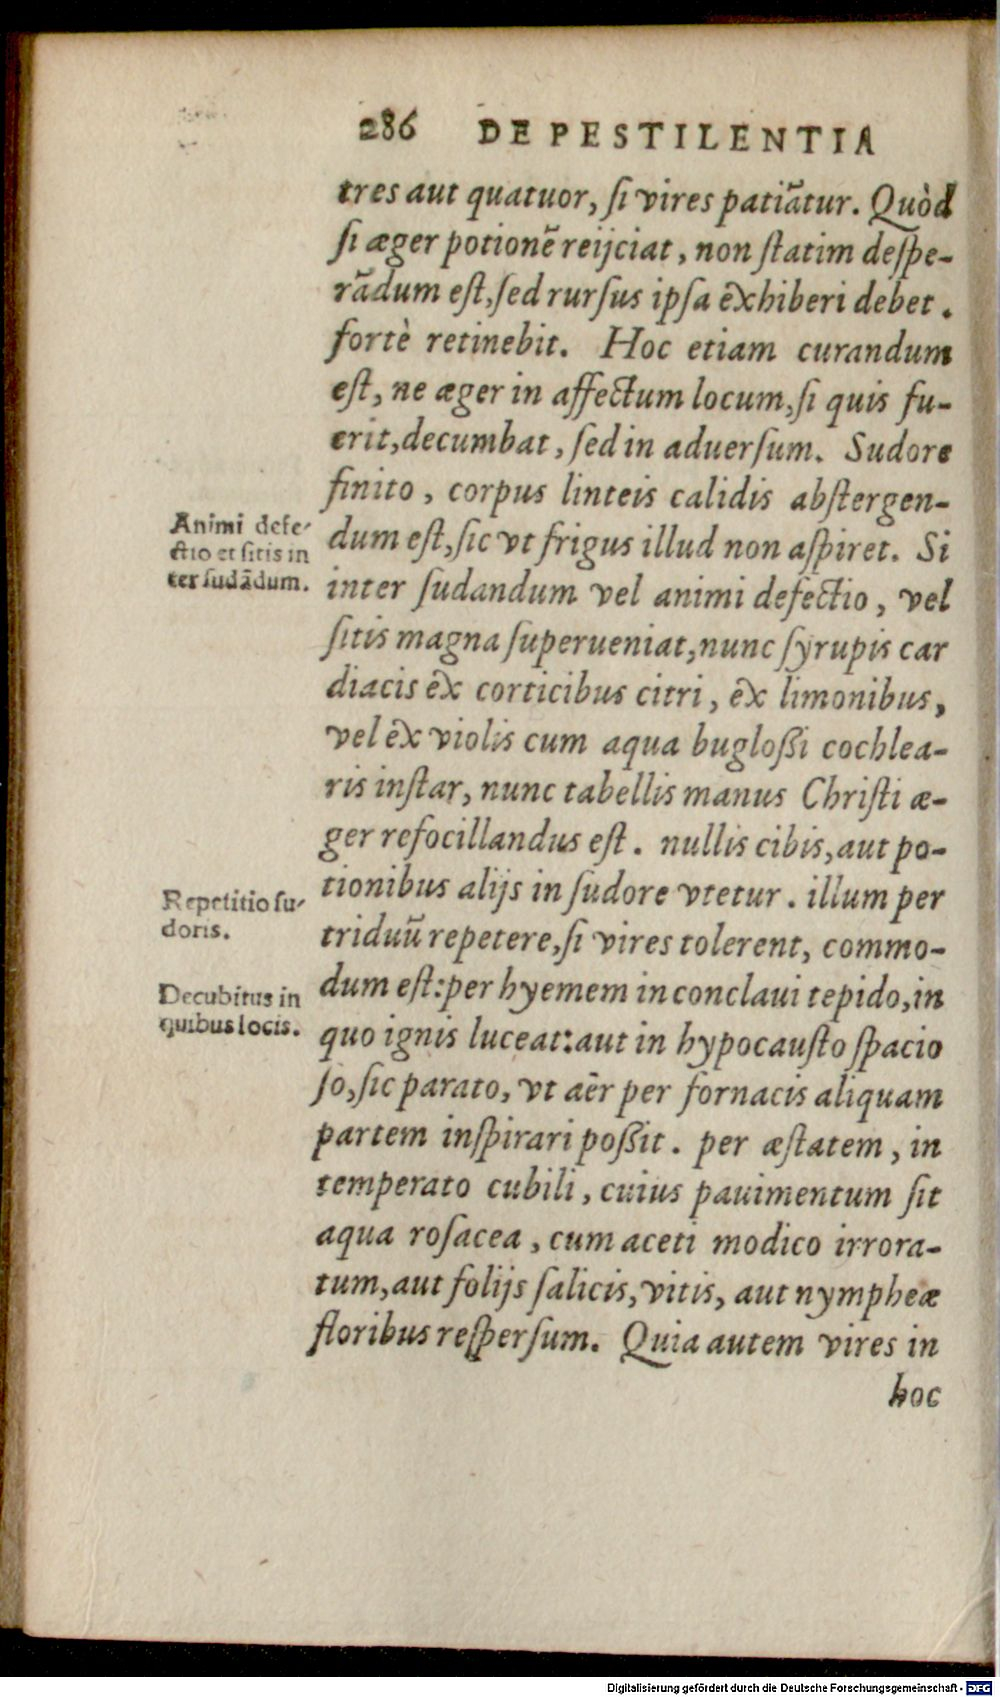 286 DE PESTILENTIA
tres aut quatuor, ſi vires patiãtur. Quòd
ſi æger potionẽ reijciat, non ſtatim deſpe-
rãdum eſt, ſed rurſus ipſa exhiberi debet.
fortè retinebit. Hoc etiam curandum
eſt, ne æger in affectum locum, ſi quis fu-
erit, decumbat, ſed in aduerſum. Sudore
finito, corpus linteis calidis abſtergen-
dum eſt, ſic vt frigus illud non aſpiret. Si
inter ſudandum vel animi defectio, vel
ſitis magna ſuperueniat, nunc ſyrupis car
diacis ex corticibus citri, ex limonibus,
vel ex violis cum aqua bugloßi cochlea-
ris inſtar, nunc tabellis manus Chriſti æ-
ger refocillandus eſt. nullis cibis, aut po-
tionibus alijs in ſudore vtetur. illum per
triduũ repetere, ſi vires tolerent, commo-
dum eſt: per hyemem in conclaui tepido, in
quo ignis luceat: aut in hypocauſto ſpacio
ſo, ſic parato, vt aër per fornacis aliquam
partem inſpirari poßit. per æſtatem, in
temperato cubili, cuius pauimentum ſit
aqua roſacea, cum aceti modico irrora-
tum, aut folijs ſalicis, vitis, aut nympheæ
floribus reſperſum. Quia autem vires in
hoc
Animi defe-
ctio et ſitis in
ter ſudãdum.
Repetitio ſu-
doris.
Decubitus in
quibus locis.
Digitalisierung gefördert durch die Deutsche Forschungsgemeinschaft - DFG